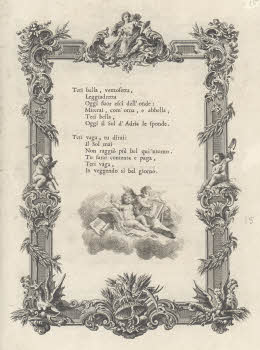 Teti bella, vezzosetta,
Leggiadretta
Oggi fuor esci dell' onde:
Mirerai, com' orna, e abbella,
Teti bella,
Oggi il Sol d' Adria le sponde.
Teti vaga, tu dirai:
Il Sol mai
Non raggiò più bel qui 'ntorno.
Tu sarai contenta e paga,
Teti vaga,
In veggendo sì bel giorno.